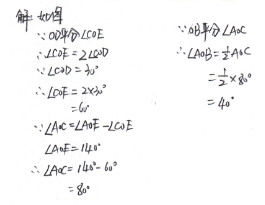 解: 如图
∵OD平分∠COE
∴∠COE=2∠COD
∵∠COD=30°
∴∠COE=2×30°
=60°
∵∠AOC=∠AOE-∠COE
∠AOE=140°
∴∠AOC=140°-60°
=80°
∵OB平分∠AOC
∴∠AOB=½AOC
=½×80°
=40°